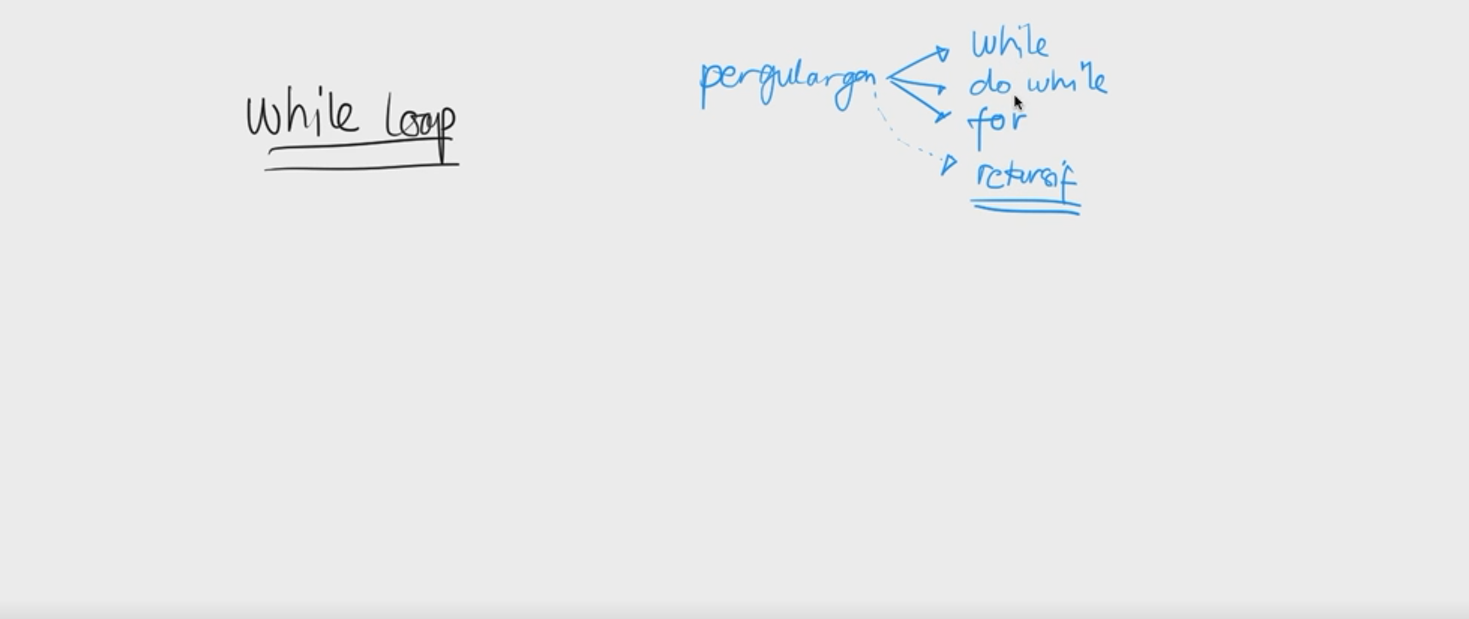 While Loop
pergulargan
while
do while
for
rekursif